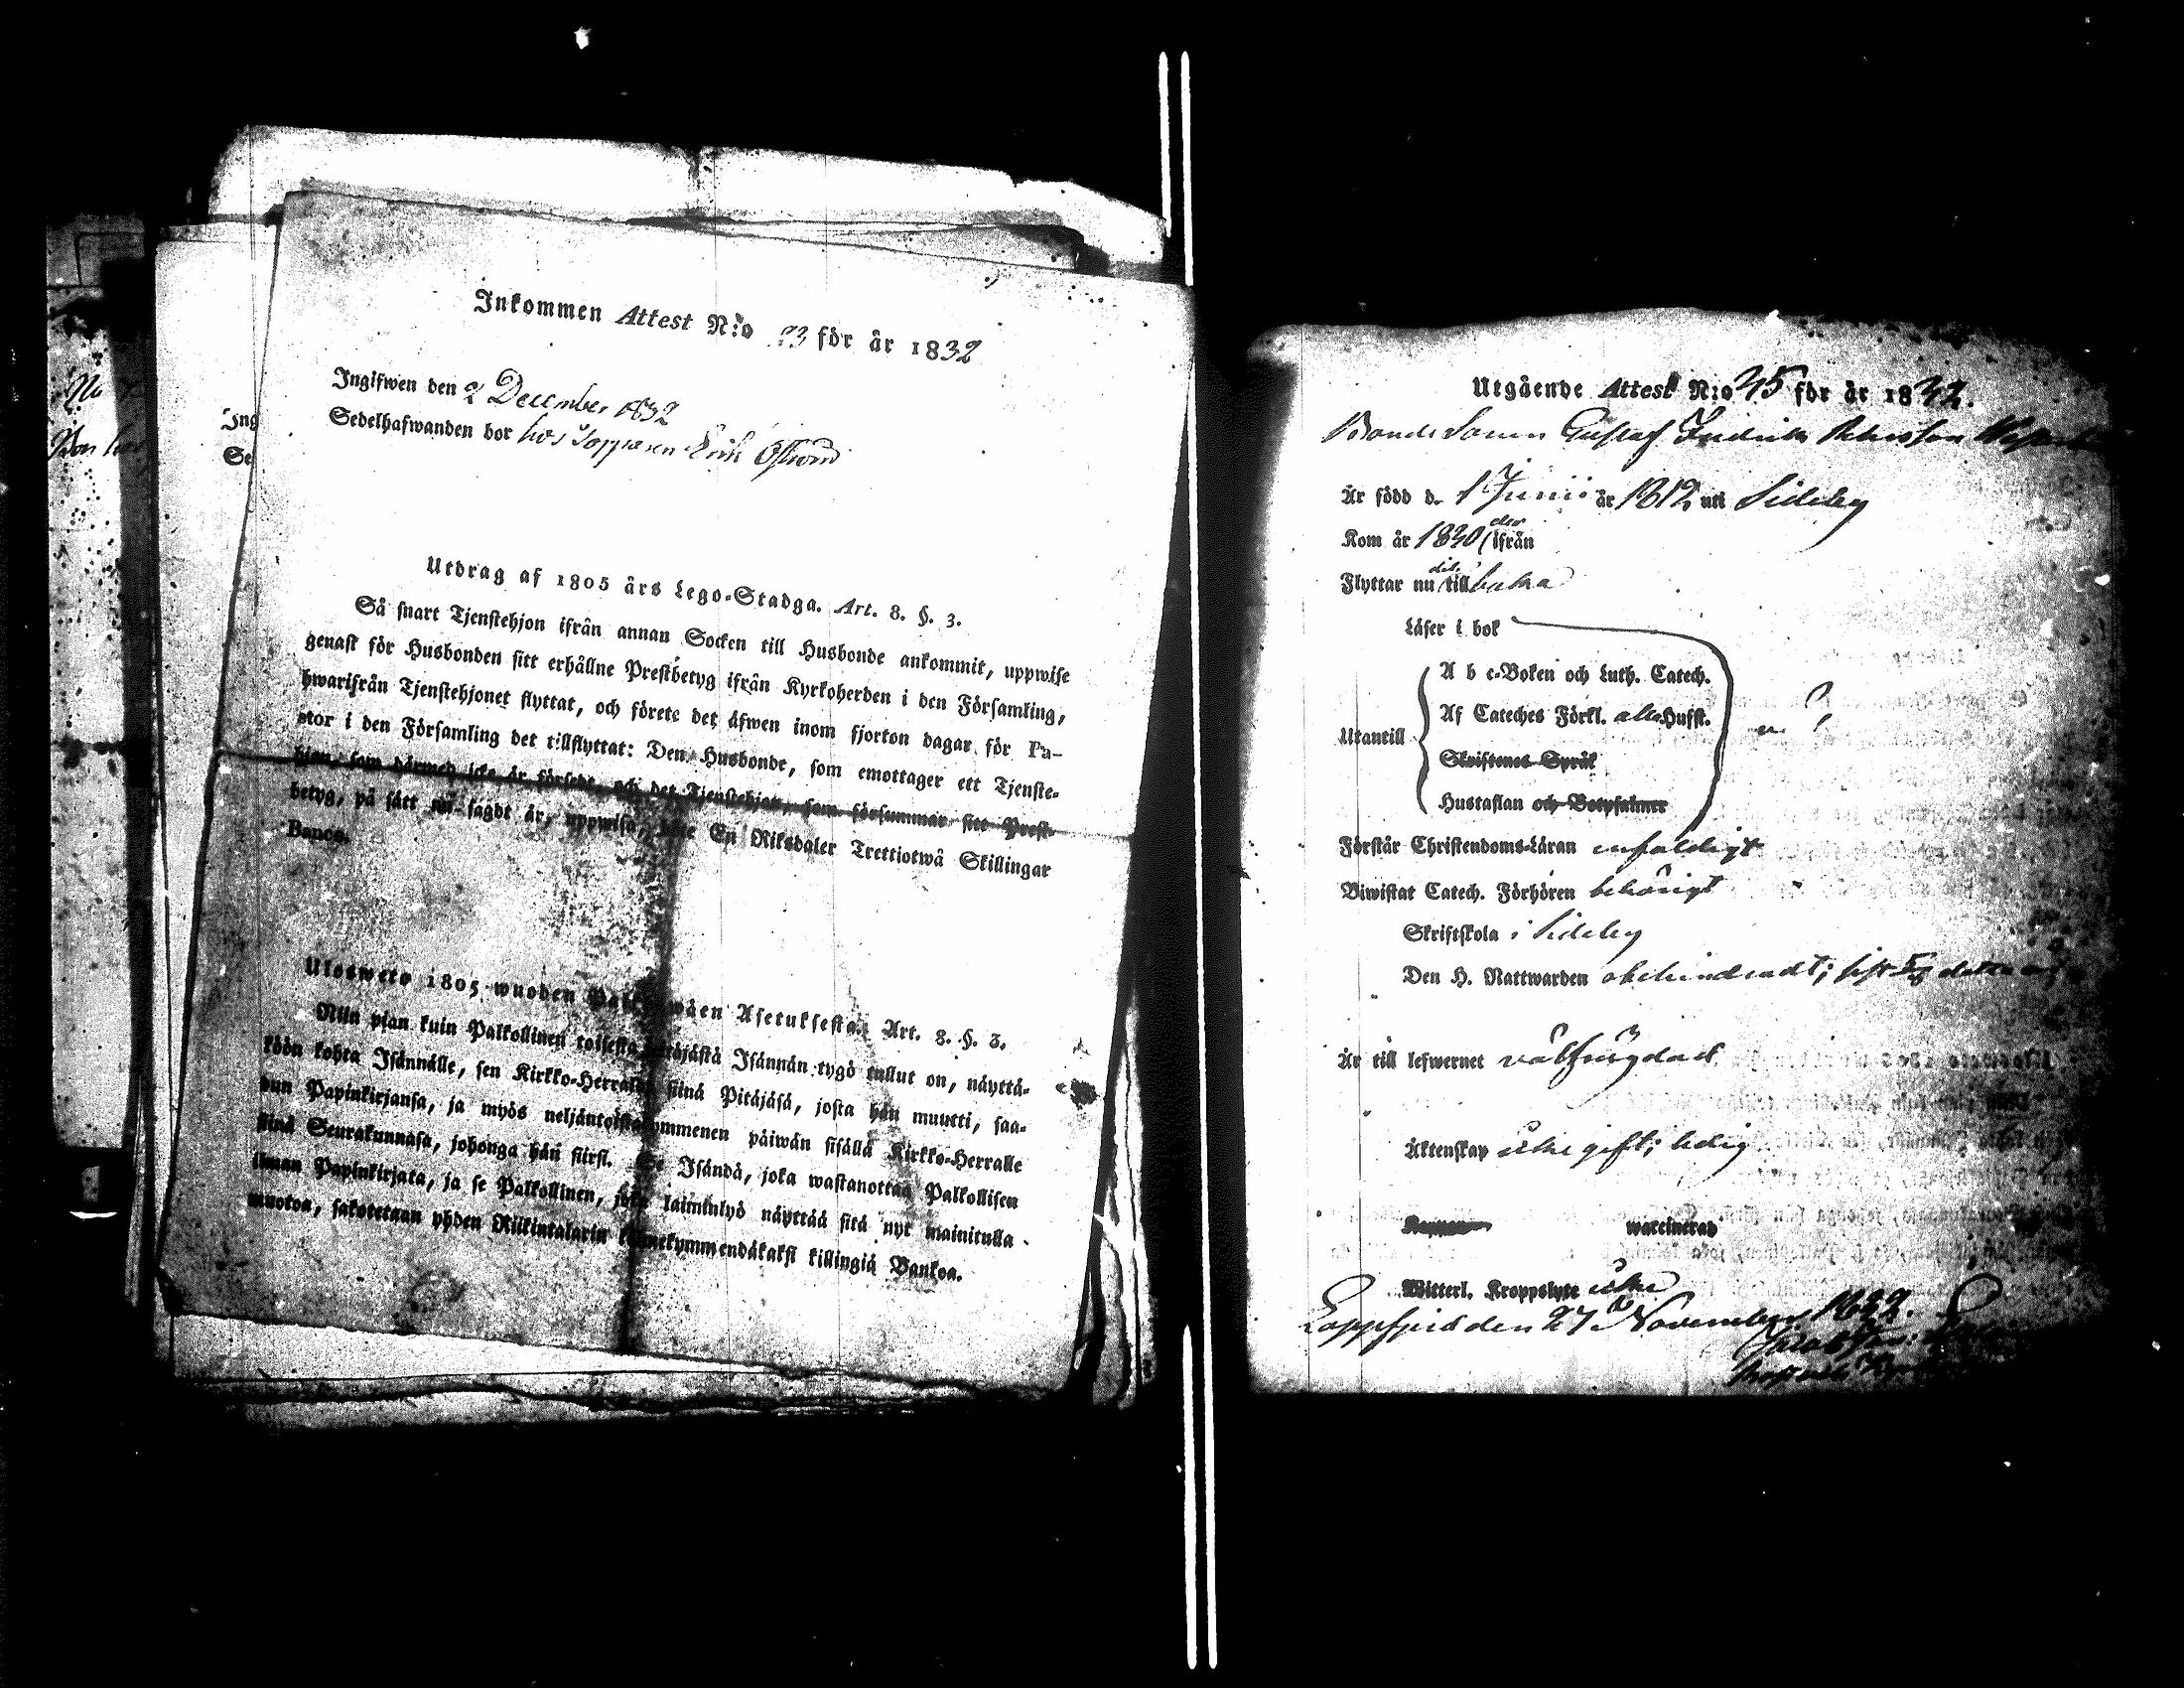 Inkommen Attest N:o 23 för år 1832
Ingifwen den 2 December 1832
Sedelhafwanden bor hos Torpparen Erik Östlund
Utdrag af 1805 års Lego-Stadga. Art. 8. §. 3.
Så snart Tjenstehjon ifrån annan Socken till Husbonde ankommit, uppwise
genast för Husbonden sitt erhållne Prestbetyg ifrån Kyrkoherden i den Församling,
hwarifrån Tjenstehjonet flyttat, och förete det äfwen inom fjorton dagar för Pa-
stor i den Församling det tillflyttat: Den Husbonde, som emottager ett Tjenste-
hjon, som därmed icke är försedt, och det Tjenstehjon, som försummar sitt Prest-
betyg, på sätt nu sagdt är, uppwisa, böte En Riksdaler Trettiotwå Skillingar
Banco.
Ulosweto 1805 wuoden wäen Asetuksesta. Art. 8. §. 3.
Niin pian kuin Palkollinen toisesta Pitäjästä Isännän tygö tullut on, näyttä-
köön kohta Isännälle, sen Kirkko-Herralda siinä Pitäjäsä, josta hän muutti, saa-
dun Papinkirjansa, ja myös neljäntoistakymmenen päiwän sisällä Kirkko-Herralle
siinä Seurakunnasa, johonga hän siirsi. Se Isändä, joka wastanottaa Palkollisen
ilman Papinkirjata, ja se Palkollinen, joka laiminlyö näyttää sitä nyt mainitulla
muotoa, sakotetaan yhden Riikintalarin kolmekymmendäkaksi killingiä Bankoa.
Utgående Attest N:o 35 för år 1832.
Bonde Sonen Gustaf Fredrik
Är född d. 1 Junii år 1812 uti Sideby
Kom år 1830 der ifrån
Flyttar nu dit till baka
Läser i bok
A b c-Boken och Luth. Catech.
Af Cateches Förkl. alla Hufst.
Utantill
Skriftenes Språk
Hustaflan och Botpsalmer
Förstår Christendoms-Läran enfaldigt
Biwistat Catech. Förhören behörigt
Skriftskola i Sideby
Den H. Nattwarden obehindradt; sist
Är till lefwernet wälfrägdad
Äktenskap icke gift; ledig
Koppor waccinerad
Witterl. Kroppslyte icke
Lappfjerd den 27 November 1832.